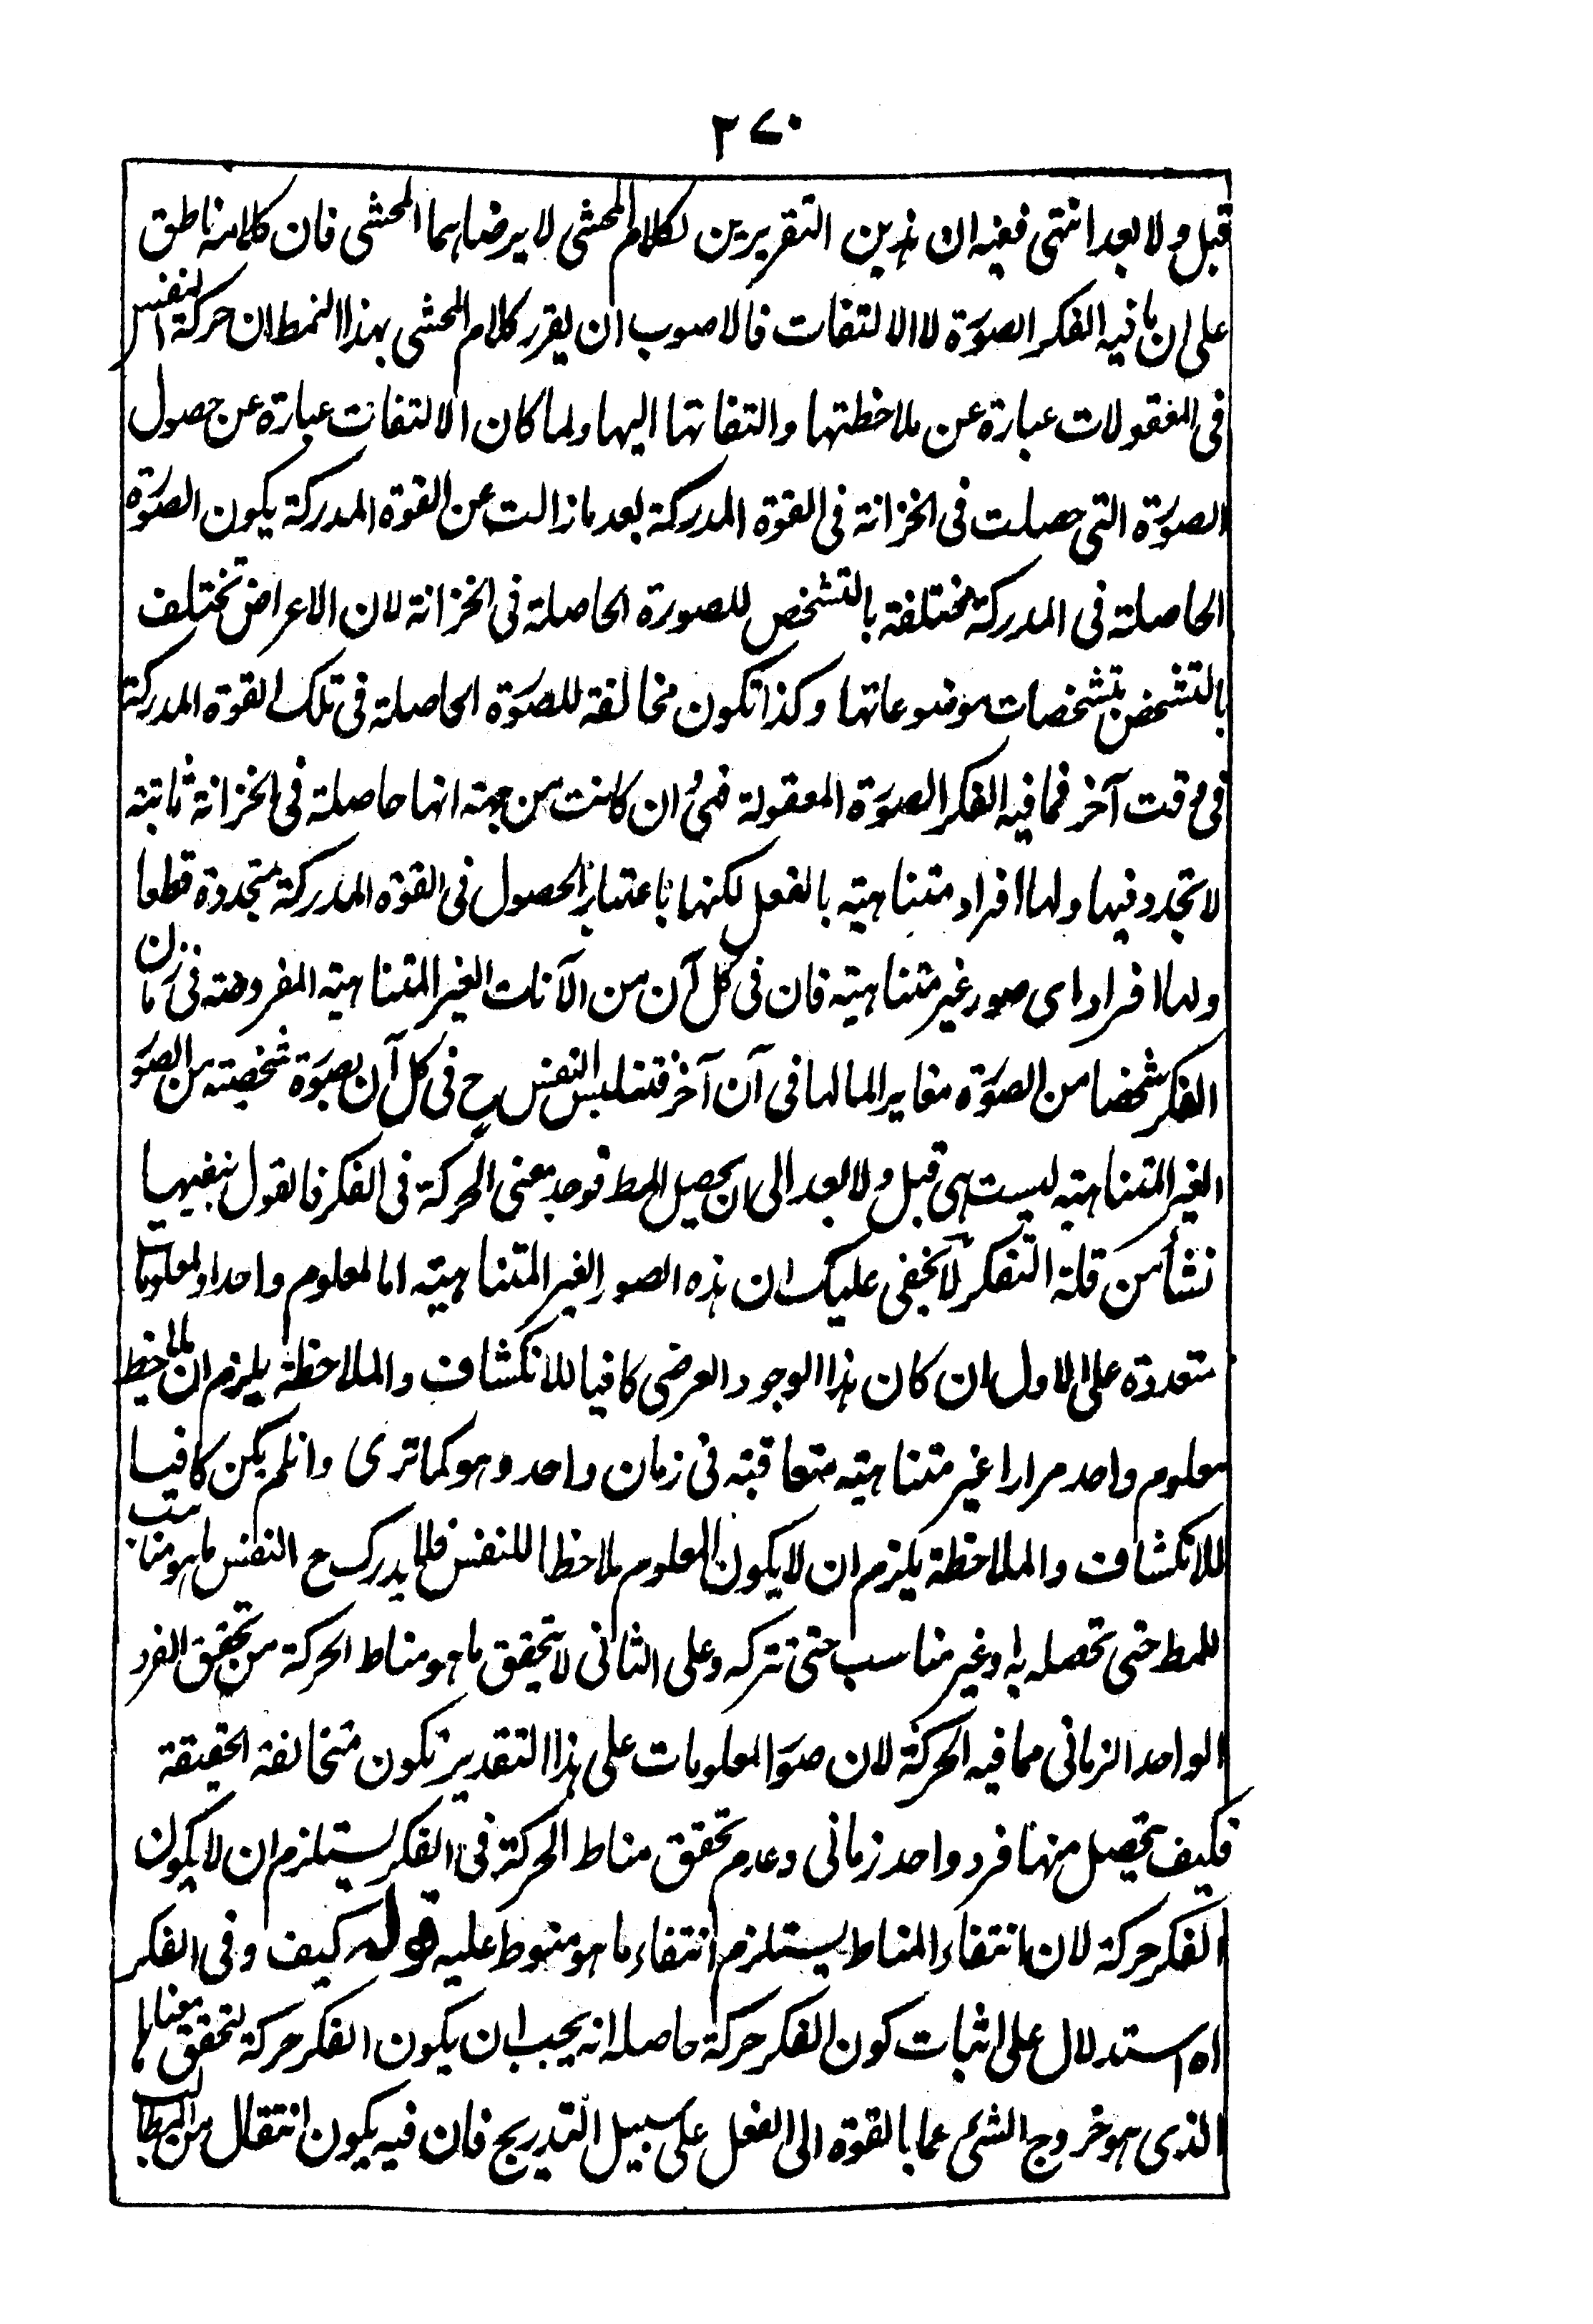 ٢٧٠
قبل ولا بعد انتهى ففيه ان هذين التقريرين لكلام المحشى لا يرضا بهما المحشى فان كلامه ناطق
على ان ما فيه الفكر الصورة لا الالتفات فالاصوب ان يقرر كلام المحشى بهذا النمط ان حركة النفس
فى المعقولات عبارة عن ملاحظتها والتفاتها اليها ولما كان الالتفات عبارة عن حصول
الصورة التى حصلت فى الخزانة فى القوة المدركة بعد ما زالت عن القوة المدركة يكون الصورة
الحاصلة فى المدركة مختلفة بالتشخص للصورة الحاصلة فى الخزانة لان الاعراض تختلف
بالتشخص بتشخصات موضوعاتها وكذا تكون مخالفة للصورة الحاصلة فى تلك القوة المدركة
فى وقت آخر فما فيه الفكر الصورة المعقولة فهى وان كانت من جهة انها حاصلة فى الخزانة ثابتة
لا تجدد فيها ولها افراد متناهية بالفعل لكنها باعتبار الحصول فى القوة المدركة متجددة قطعا
ولها افراد اى صور غير متناهية فان فى كل آن من الآنات الغير المتناهية المفروضة فى زمان
الفكر شخصا من الصورة مغايرا لما لها فى آن آخر فتتلبس النفس ح فى كل آن بصورة شخصية من الصور
الغير المتناهية ليست هى قبل ولا بعد الى ان يحصل المط فوجد معنى الحركة فى الفكر فالقول بنفيها
نشأ من قلة التفكر لا يخفى عليك ان هذه الصور الغير المتناهية اما لمعلوم واحد او لمعلومات
متعددة على الاول ان كان هذا الوجود العرضى كافيا للانكشاف والملاحظة يلزم ان يلاحظ
معلوم واحد مرارا غير متناهية متعاقبة فى زمان واحد وهو كما ترى وان لم يكن كافيا
للانكشاف والملاحظة يلزم ان لا يكون المعلوم ملاحظا للنفس فلما يدرك ح النفس ما هو مناسب
للمط حتى تحصله به او غير مناسب حتى تتركه وعلى الثانى لا يتحقق ما هو مناط الحركة من تحقق الفرد
الواحد الزمانى مما فيه الحركة لان صور المعلومات على هذا التقدير تكون متخالفة الحقيقة
فكيف يحصل منها فرد واحد زمانى وعدم تحقق مناط الحركة فى الفكر يستلزم ان لا يكون
الفكر حركة لان انتفاء المناط يستلزم انتفاء ما هو منوط عليه قوله كيف وفى الفكر
اه استدلال على اثبات كون الفكر حركة حاصله انه يجب ان يكون الفكر حركة لتحقق معناها
الذى هو خروج الشئ عما بالقوة الى الفعل على سبيل التدريج فان فيه يكون انتقال من المطالب